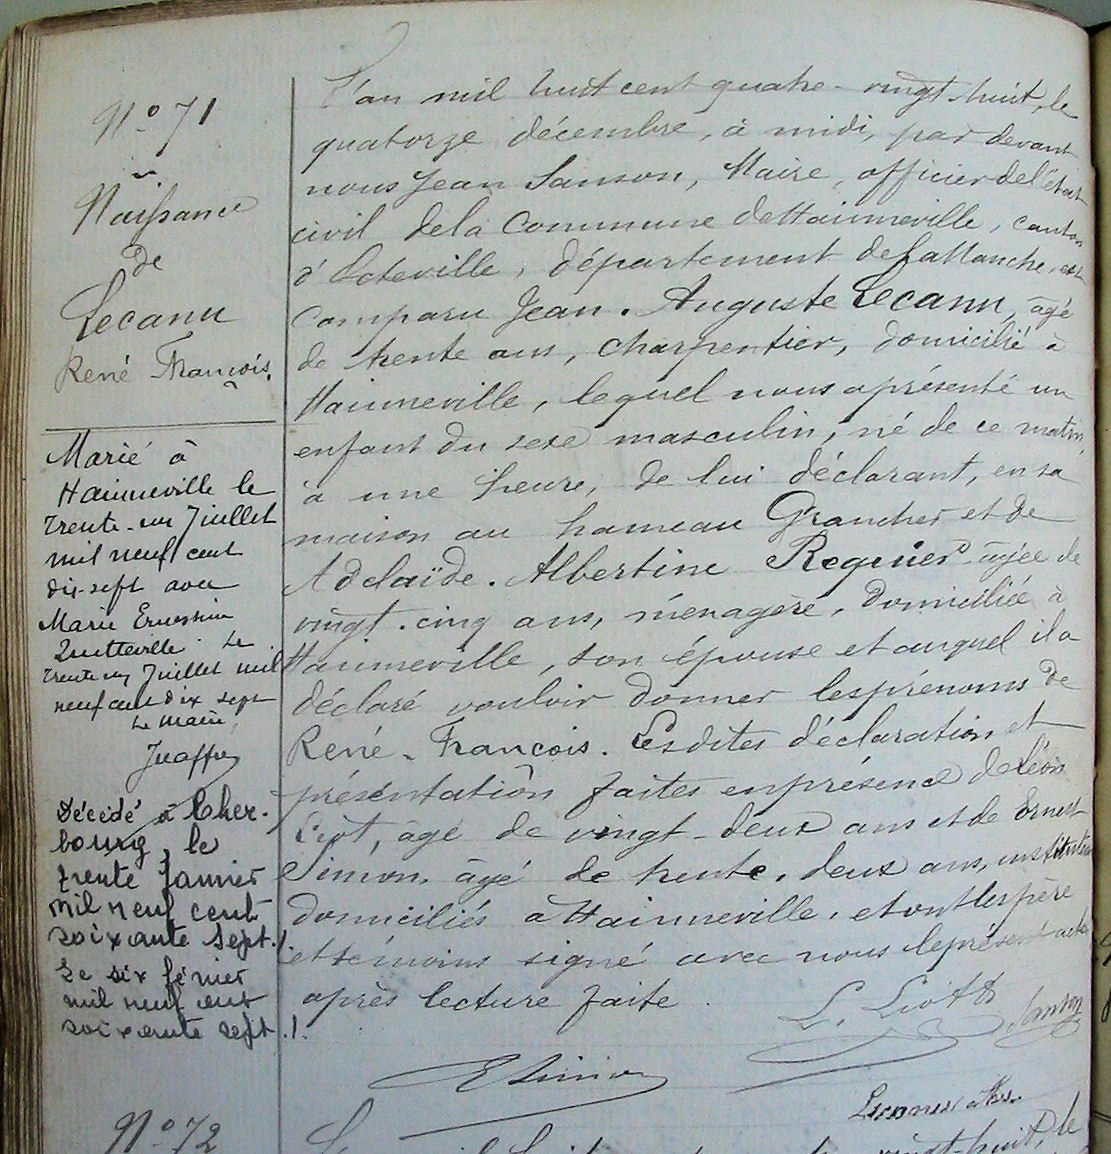 N° 71
Naissance
de
Lecanu
René François.
Marié à
Hainneville le
trente-un Juillet
mil neuf cent
dix-sept avec
Marie Ernestine
Quetteville. Le
trente un Juillet mil
neuf cent dix sept
Le Maire,
Décédé à Cher-
bourg, le
trente Janvier
mil neuf cent
soixante sept./.
Le six février
mil neuf cent
soixante sept./.
L'an mil huit cent quatre-vingt-huit, le
quatorze décembre, à midi, par devant
nous Jean Sanson, Maire, officier de l'état
civil de la Commune de Hainneville, canton
d'Octeville, département de la Manche, est
comparu Jean. Auguste Lecanu, âgé
de trente ans, charpentier, domicilié à
Hainneville, lequel nous a présenté un
enfant du sexe masculin, né de ce matin,
à une heure, de lui déclarant, en sa
maison au hameau Grancher et de
Adelaïde. Albertine Regnier âgée de
vingt-cinq ans, ménagère, domiciliée à
Hainneville, son épouse et auquel il a
déclaré vouloir donner les prénoms de
René-François. Lesdites déclaration et
présentation faites en présence de Léon
Liot, âgé de vingt-deux ans et de Ernest
Simon, âgé de trente-deux ans, instituteurs
domiciliés à Hainneville, et ont les père
et témoins signé avec nous le présent acte
après lecture faite.
L. Liot
Sanson
E Simon
N° 72